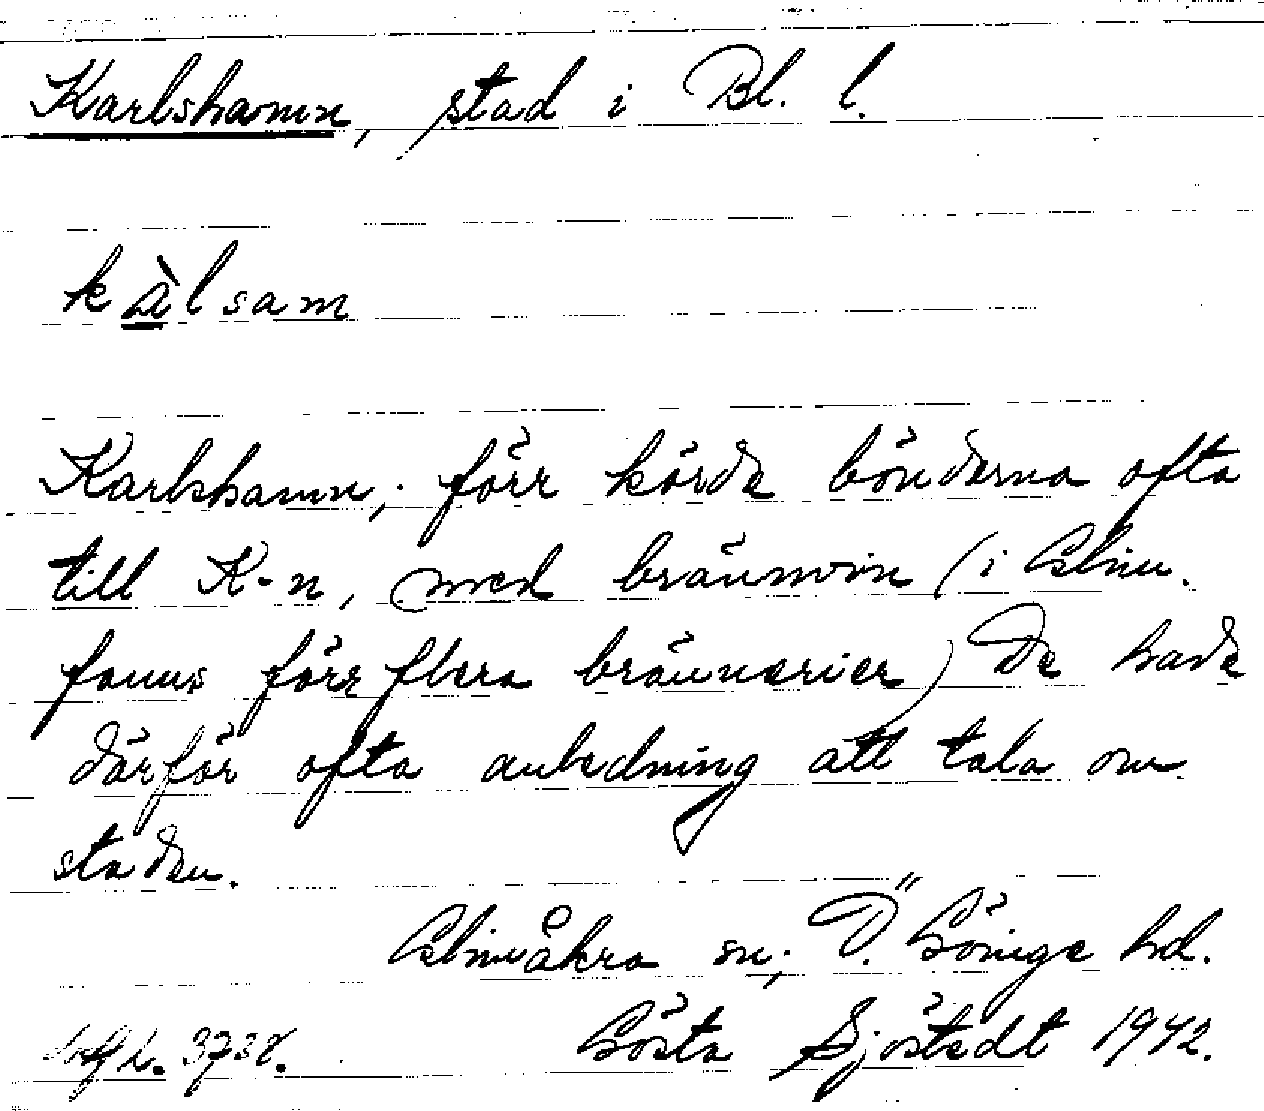 Karlshamn, stad i Bl. l.
kàlsam
Karlshamn; förr körde bönderna ofta
till K-n, med brännvin (i Glim.
fanns förr flera brännerier) De hade
därför ofta anledning att tala om
staden.
Glimåkra sn; Ö. Göinge hd.
3738.
Gösta Sjöstedt 1942.